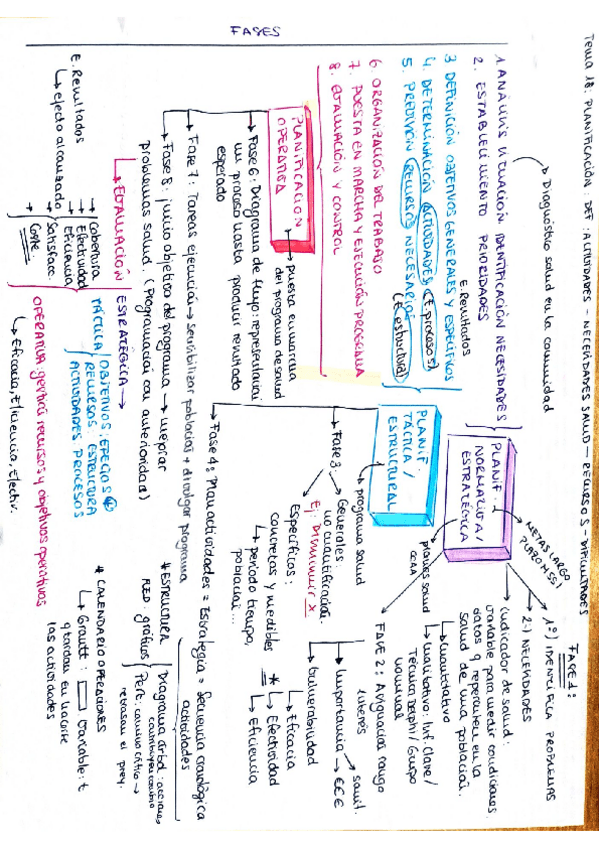 Tema 18: PLANIFICACIÓN: DEF: ACTIVIDADES - NECESIDADES SALUD - RECURSOS - DIFICULTADES
Diagnóstico salud en la comunidad
FASES
1. ANÁLISIS SITUACIÓN IDENTIFICACIÓN NECESIDADES
2. ESTABLECIMIENTO PRIORIDADES
E. Resultados
3 DEFINICIÓN OBJETIVOS GENERALES Y ESPECÍFICOS
4. DETERMINACIÓN ACTIVIDADES (E. procesos)
5. PREVISIÓN RECURSOS NECESARIOS (E. estructura)
6 ORGANIZACIÓN DEL TRABAJO
7. PUESTA EN MARCHA Y EJECUCIÓN PROGRAMA
8. EVALUACIÓN Y CONTROL
PLANIF. NORMATIVA/
ESTRATÉGICA
METAS LARGO
PLAZO
planes salud
CCAA
FASE 1:
1º) IDENTIFICA PROBLEMAS
2-) NECESIDADES
Indicador de salud:
variable para medir condiciones.
datos q repercuten en la
salud de una población.
Cuantitativo
Cualitativo: Inf. Clave/
Técnica Delphi/Grupo
nominal
FASE 2: Asignación rango
interés
Importancia
Vulnerabilidad
Eficacia
Efectividad
Eficiencia
PLANIF.
TÁCTICA/
ESTRUCTURAL
programa salud
Fase 3
Generales:
no cuantificación
Ej: Disminuir X
Específicos:
concretas y medibles
periodo tiempo,
población...
Fase 4: Plan actividades = Estrategia = Secuencia cronológica
actividades
PLANIFICACION
OPERATIVA
puesta en marcha
del programa de salud
Fase 6: Diagrama de flujo: representación
un proceso hasta producir resultado
esperado
Fase 7: Tareas ejecución → sensibilizar población + divulgar programa
Fase 8: juicio objetivo del programa → mejorar
problemas salud. (Programación con anterioridad)
* ESTRUCTURA
RED: gráficos
Diagrama árbol: acciones,
Pert: camino crítico →
retrasan el proy.
* CALENDARIO OPERACIONES
Grantt:
variable: t
q tardan en hacerse
las actividades
EVALUACIÓN
ESTRATÉGICA →
TÁCTICA
OBJETIVOS: EFECTOS
RECURSOS ESTRUCTURA
ACTIVIDADES PROCESOS
OPERATIVA: gestión recursos y objetivos operativos
Eficacia, Eficiencia, Efectiv.
E. Resultados
efecto alcanzado
Cobertura
Efectividad
Eficiencia
Satisfacc.